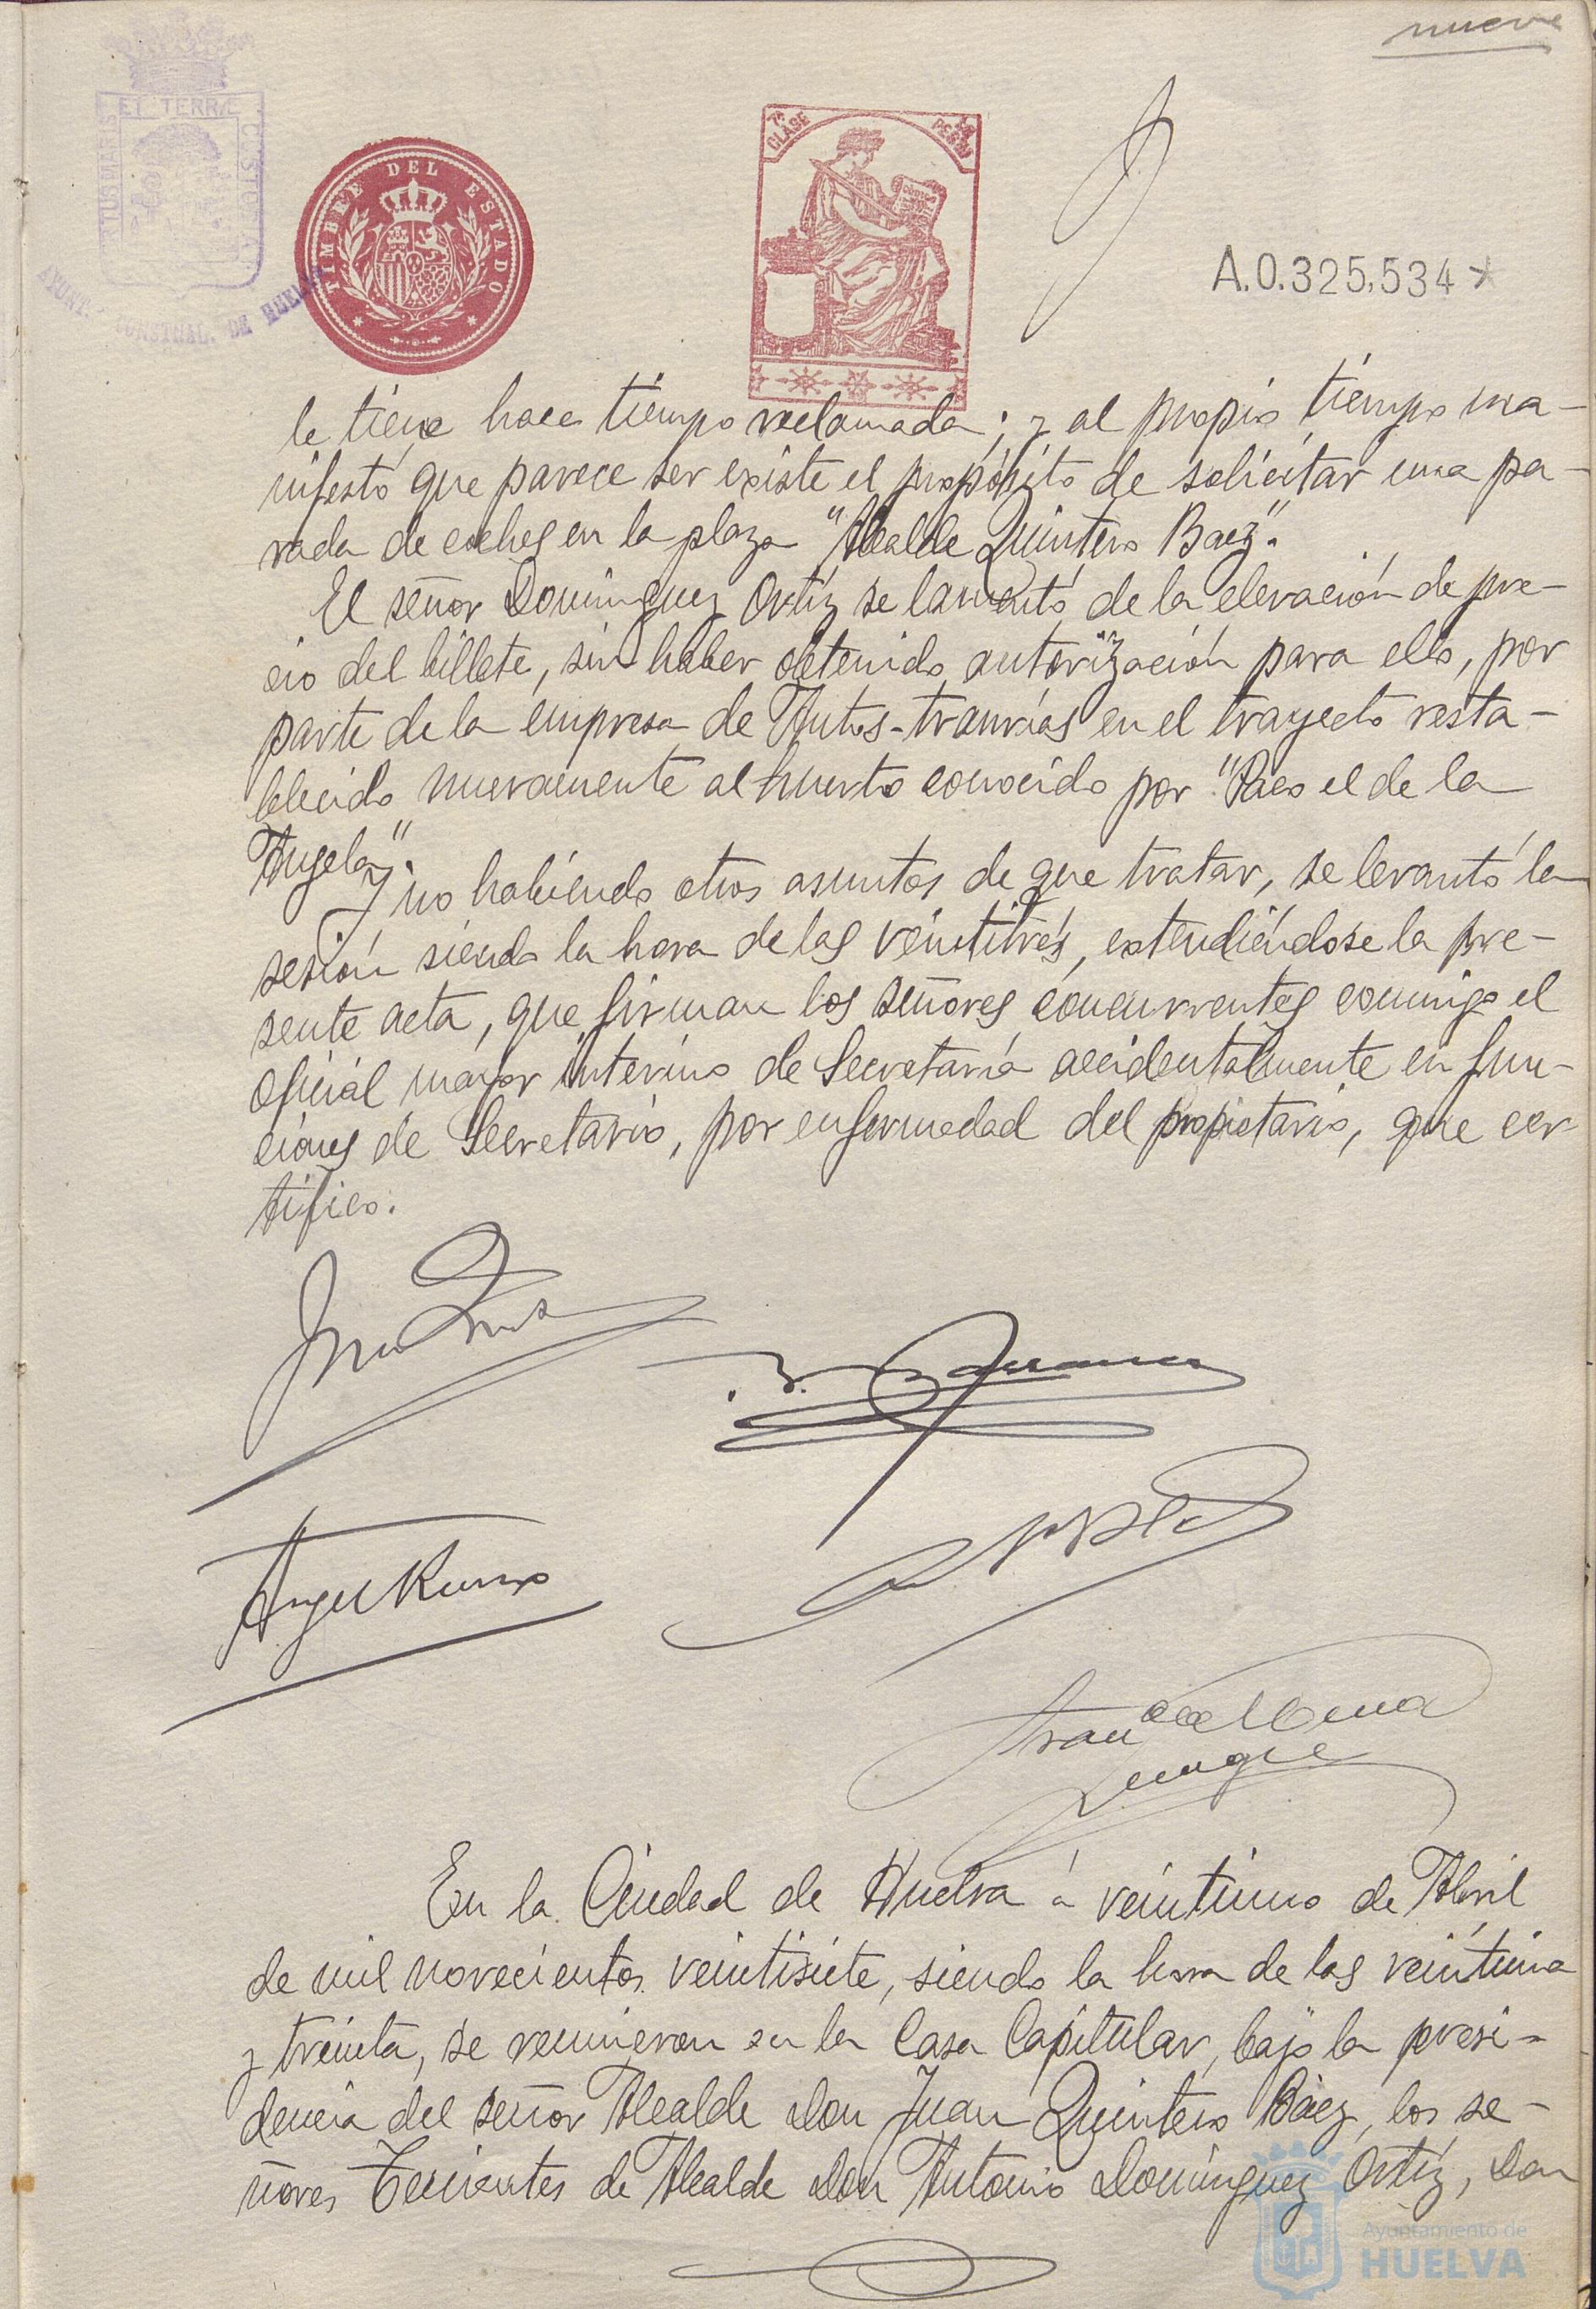 nueve
ET TERRÆ
TIMBRE DEL ESTADO
7ª CLASE
AYUNTº CONSTNAL. DE HUELVA
A.0.325,534*
le tiene hace tiempo reclamada; y al propio tiempo ma-
nifestó que parece ser existe el propósito de solicitar una pa-
rada de coches en la plaza "Alcalde Quintero Baez".
El señor Dominguez Ortíz se lamentó de la elevación de pre-
cio del billete, sin haber obtenido autorización para ello, por
parte de la empresa de Autos-tranvías en el trayecto resta-
blecido nuevamente al huerto conocido por "Paco el de la
Angela".
Y no habiendo otros asuntos de que tratar, se levantó la
sesión siendo la hora de las veintitrés, extendiéndose la pre-
sente acta, que firman los señores concurrentes conmigo el
oficial mayor interino de Secretaría accidentalmente en fun-
ciones de Secretario, por enfermedad del propietario, que cer-
tifico.
En la Ciudad de Huelva á veintiuno de Abril
de mil novecientos veintisiete, siendo la hora de las veintiuna
y treinta, se reunieron en la Casa Capitular, bajo la presi-
dencia del señor Alcalde Don Juan Quintero Báez, los se-
ñores Tenientes de Alcalde Don Antonio Domínguez Ortíz, Don
Ayuntamiento de
HUELVA